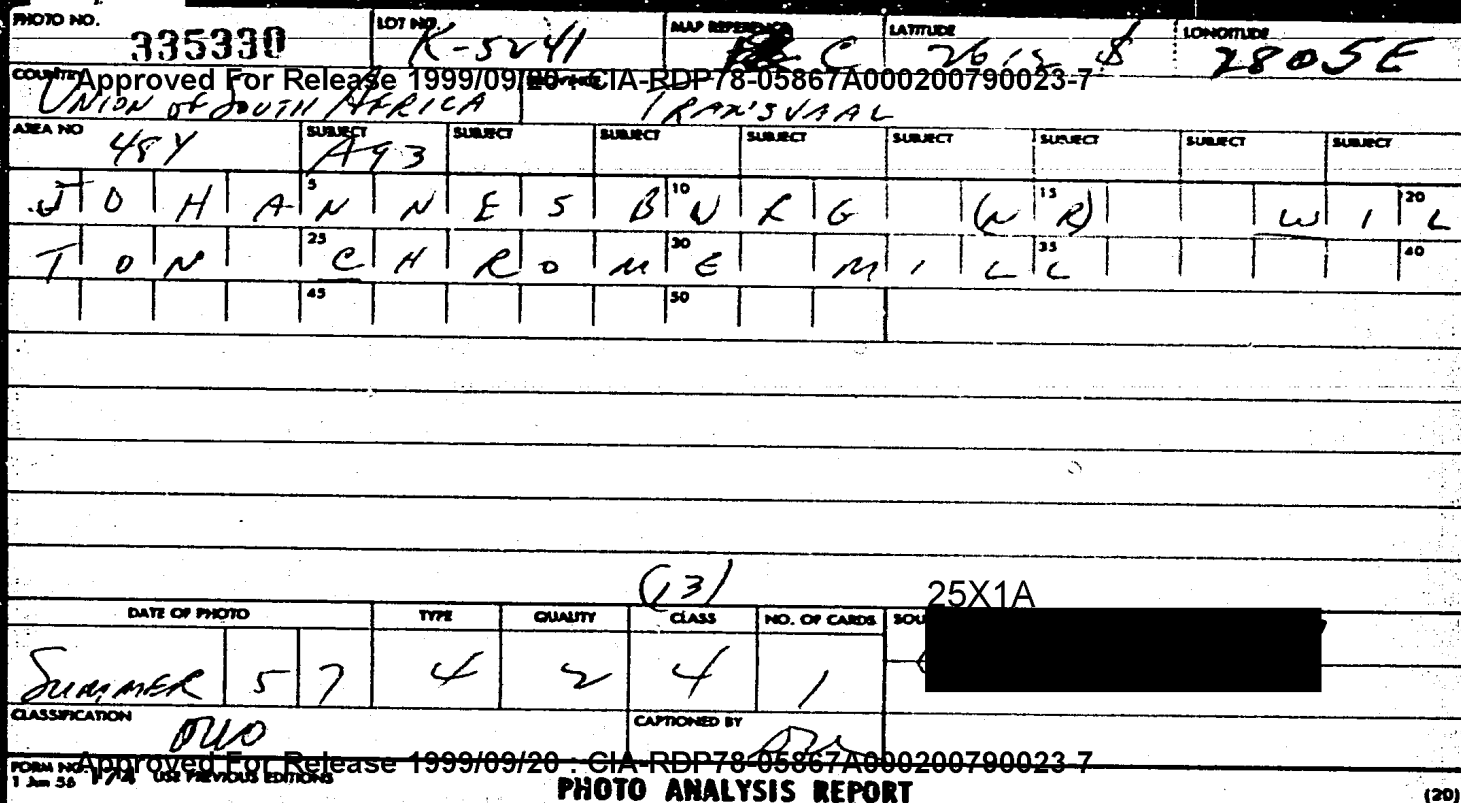 PHOTO NO. 335330 LOT NO. K-5241 MAP REFERENCE C LATITUDE 26 12 S LONGITUDE 2805E
COUNTRY Approved For Release 1999/09/20 : CIA-RDP78-05867A000200790023-7
UNION OF SOUTH AFRICA TRANSVAAL
AREA NO 48Y SUBJECT A93 SUBJECT SUBJECT SUBJECT SUBJECT SUBJECT SUBJECT SUBJECT
5 10 15 20
JOHANNESBURG (NR) WIL
25 30 35 40
TON CHROME MILL
45 50
(13)
25X1A
DATE OF PHOTO TYPE QUALITY CLASS NO. OF CARDS
SUMMER 57 4 2 4 1
CLASSIFICATION OUO CAPTIONED BY
FORM NO. Approved For Release 1999/09/20 : CIA-RDP78-05867A000200790023-7
1 Jun 56 USE PREVIOUS EDITIONS
PHOTO ANALYSIS REPORT (20)